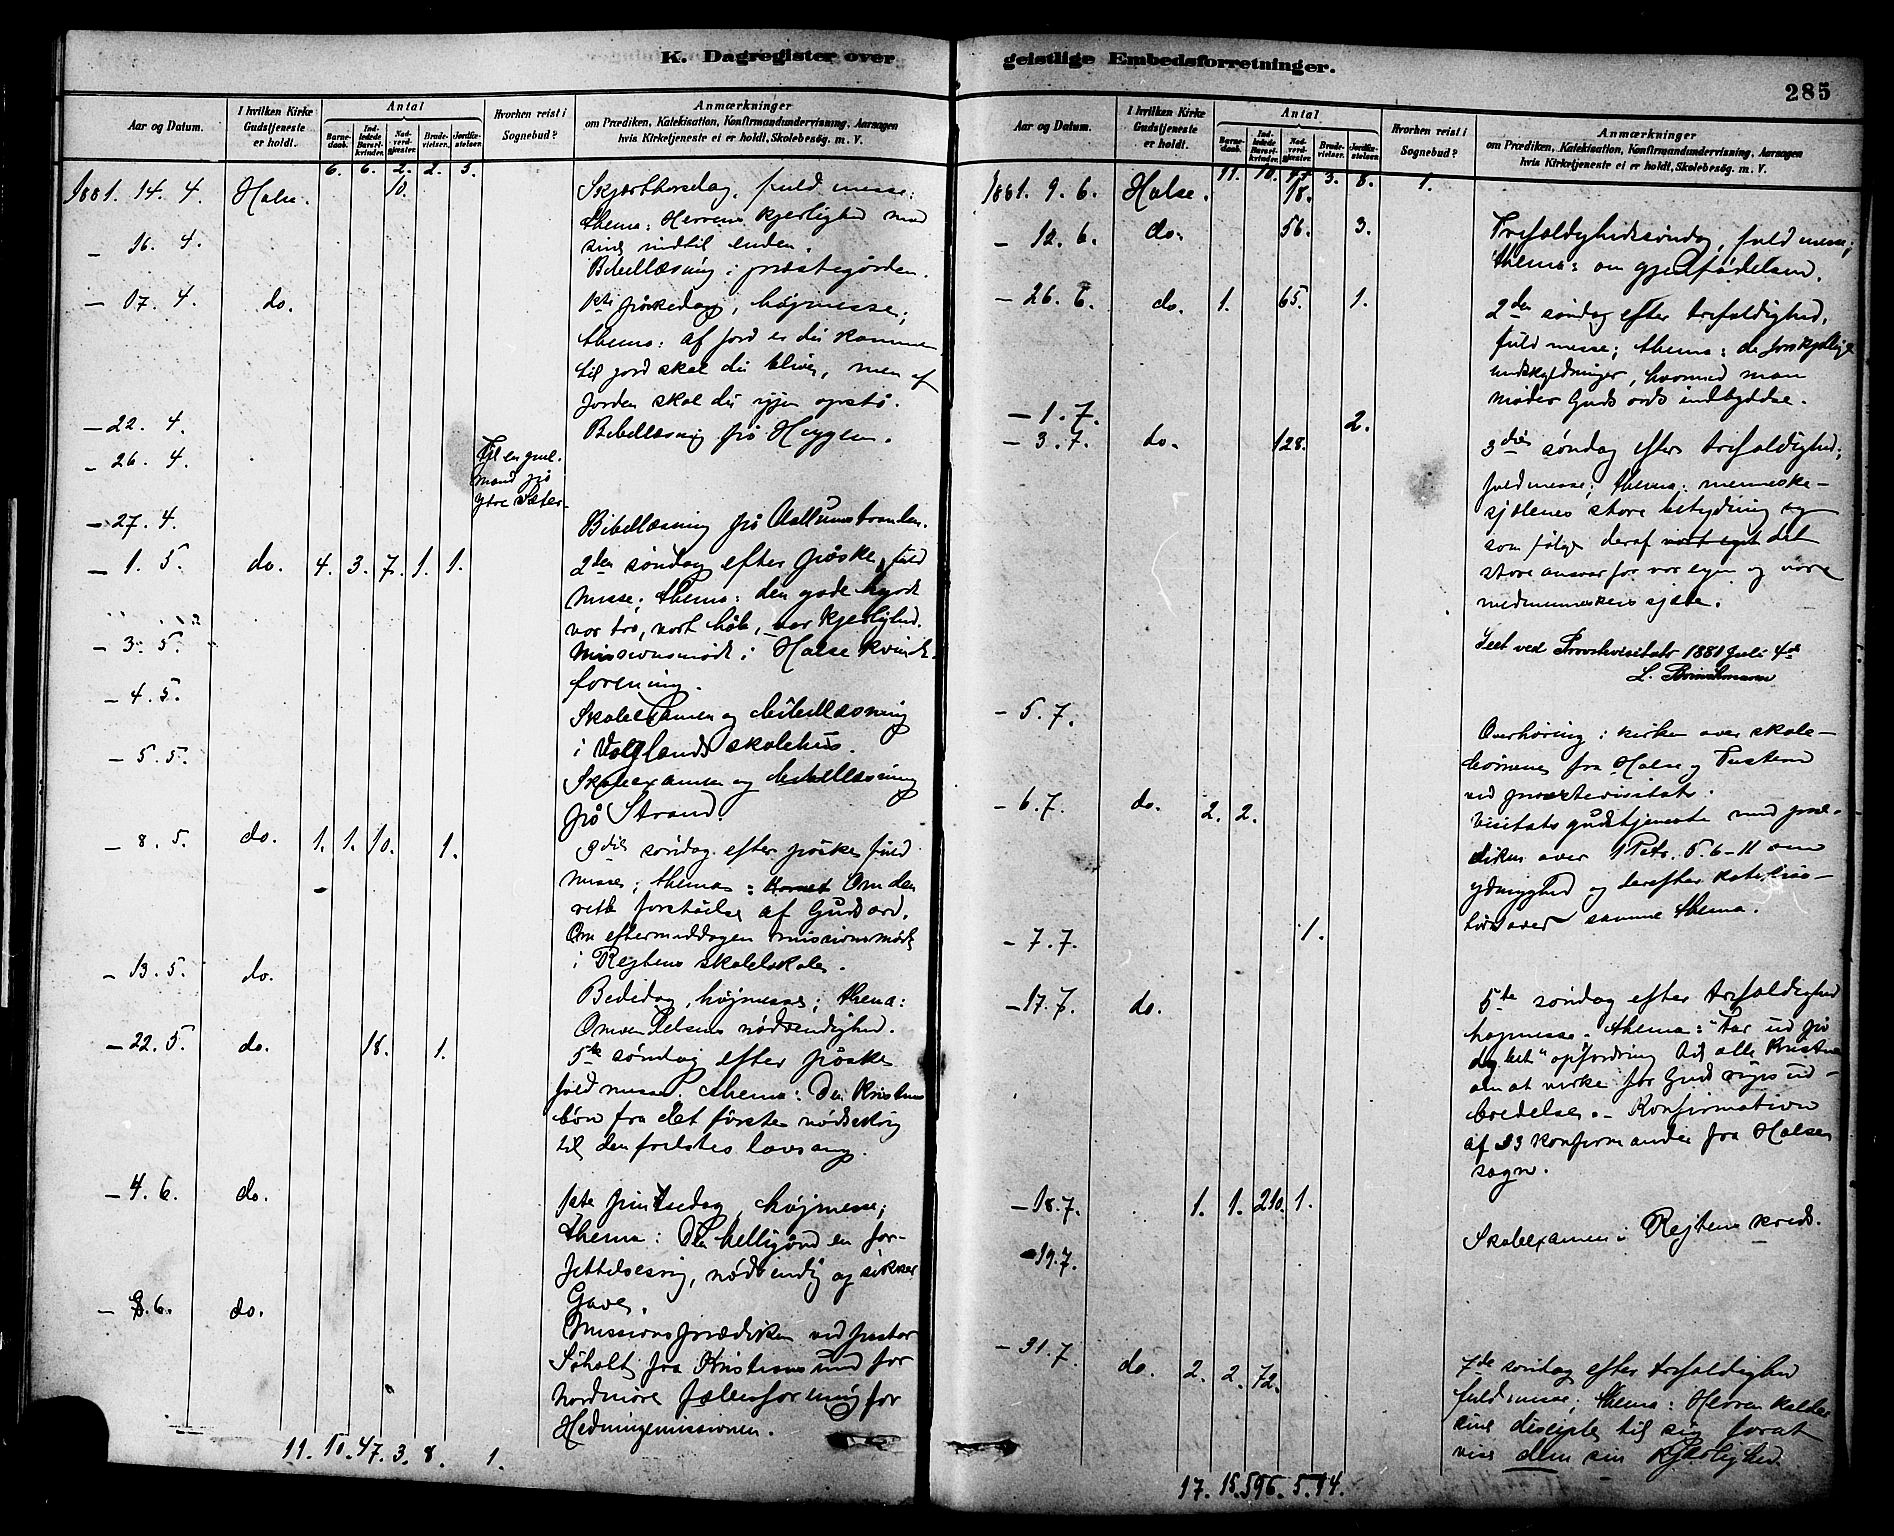 K. Dagregister over geistlige Embedsforretninger.
285
Aar og Datum.
I hvilken Kirke Gudstjeneste er holdt.
Antal
Barnedaab.
Indledede Barselkvinder.
Nadverdgjester.
Brudevielser.
Jordfæstelser.
Hvorhen reist i Sognebud?
Anmærkninger
om Prædiken, Katekisation, Konfirmandundervisning, Aarsagen
hvis Kirketjeneste ei er holdt, Skolebesög. m. V.
6. 6. 2. 2. 5.
1881. 14. 4. Halse. 10. Skjærthorsdag, fuld messe;
thema: Herrens kjerlighed mod
sine indtil enden.
– 16. 4. Bibellæsning i præstegården.
– 17. 4. do. 1ste påskedag, højmesse;
thema: af jord er du kommen
til jord skal du blive, men af
Jorden skal du igjen opstå.
– 22. 4. Bibellæsning på Heggem.
– 26. 4. Til en gmel.
mand på
ytre Sæter.
– 27. 4. Bibellæsning på
– 1. 5. do. 4. 3. 7. 1. 1. 2den søndag efter påske, fuld
messe; thema: den gode hyrde
vor tro, vort håb, vor kjerlighed.
– 3. 5. Missionsmøde i Halse kvinde-
forening.
– 4. 5. Skoleexamen og bibellæsning
i Vaglands skolehus.
– 5. 5. Skoleexamen og bibellæsning
på Strand.
– 8. 5. do. 1. 1. 10. 1. 3die søndag efter påske fuld
messe; thema: Om den
rette forståelse af Guds ord.
Om eftermiddagen missionsmøde
i Rejtens skolelokale.
– 13. 5. do. Bededag, højmesse; thema:
Omvendelsens nødvendighed.
– 22. 5. do. 18. 1. 5te søndag efter påske
fuld messe. thema: Den kristnes
bøn fra det første nødskrig
til den frelstes lovsang.
– 4. 6. do. 1ste pintsedag, højmesse;
thema: Den helligånd en for-
jettelsesrig, nødvendig og sikker
Gave.
– 8. 6. do. Missionsprædiken ved pastor
Søholt fra Kristiansund for
Nordmøre fællesforening for
Hedningemissionen.
11. 10. 47. 3. 8. 1.
Aar og Datum.
I hvilken Kirke Gudstjeneste er holdt.
Antal
Barnedaab.
Indledede Barselkvinder.
Nadverdgjester.
Brudevielser.
Jordfæstelser.
Hvorhen reist i Sognebud?
Anmærkninger
om Prædiken, Katekisation, Konfirmandundervisning, Aarsagen
hvis Kirketjeneste ei er holdt, Skolebesög. m. V.
11. 10. 47. 3. 8. 1.
1881. 9. 6. Halse. 18.
– 12. 6. do. 56. 3. Trefoldighedssøndag, fuld messe;
thema: om gjenfødelsen.
– 26. 6. do. 1. 65. 1. 2den søndag efter trefoldighed,
fuld messe; thema: de forskjellige
undskyldninger, hvormed man
møder Guds ords indbydelse.
– 1. 7. 2.
– 3. 7. do. 128. 3die søndag efter trefoldighed;
fuld messe; thema: menneske-
sjælenes store betydning og
som følge deraf vort eget det
store ansvar for vor egen og vore
medmenneskers sjæle.
Seet ved Provstevisitats 1881 Juli 4de
– 5. 7. Overhøring i kirken over skole-
børnene fra Halse og Tustern
ved provstevisitats.
– 6. 7. do. 2. 2. Visitatsgudstjeneste med præ-
diken over 1 Petr. 5. 6–11 om
ydmyghed og derefter katekisa-
tion over samme thema.
– 7. 7. 1.
– 17. 7. do. 5te søndag efter trefoldighed
højmesse. thema: "Far ud på
dybet" opfordring til alle kristne
om at virke for Guds riges ud-
bredelse. – Konfirmation
af 33 konfirmander fra Halse
sogn.
– 18. 7. 1. 1. 210. 1.
– 19. 7. Skoleexamen i Rejtens kreds.
– 31. 7. do. 2. 2. 72. 7de søndag efter trefoldighed
fuld messe; thema: Herren kalder
sine disciple til sig forat
vise dem sin kjærlighed
17. 15. 596. 5. 14.